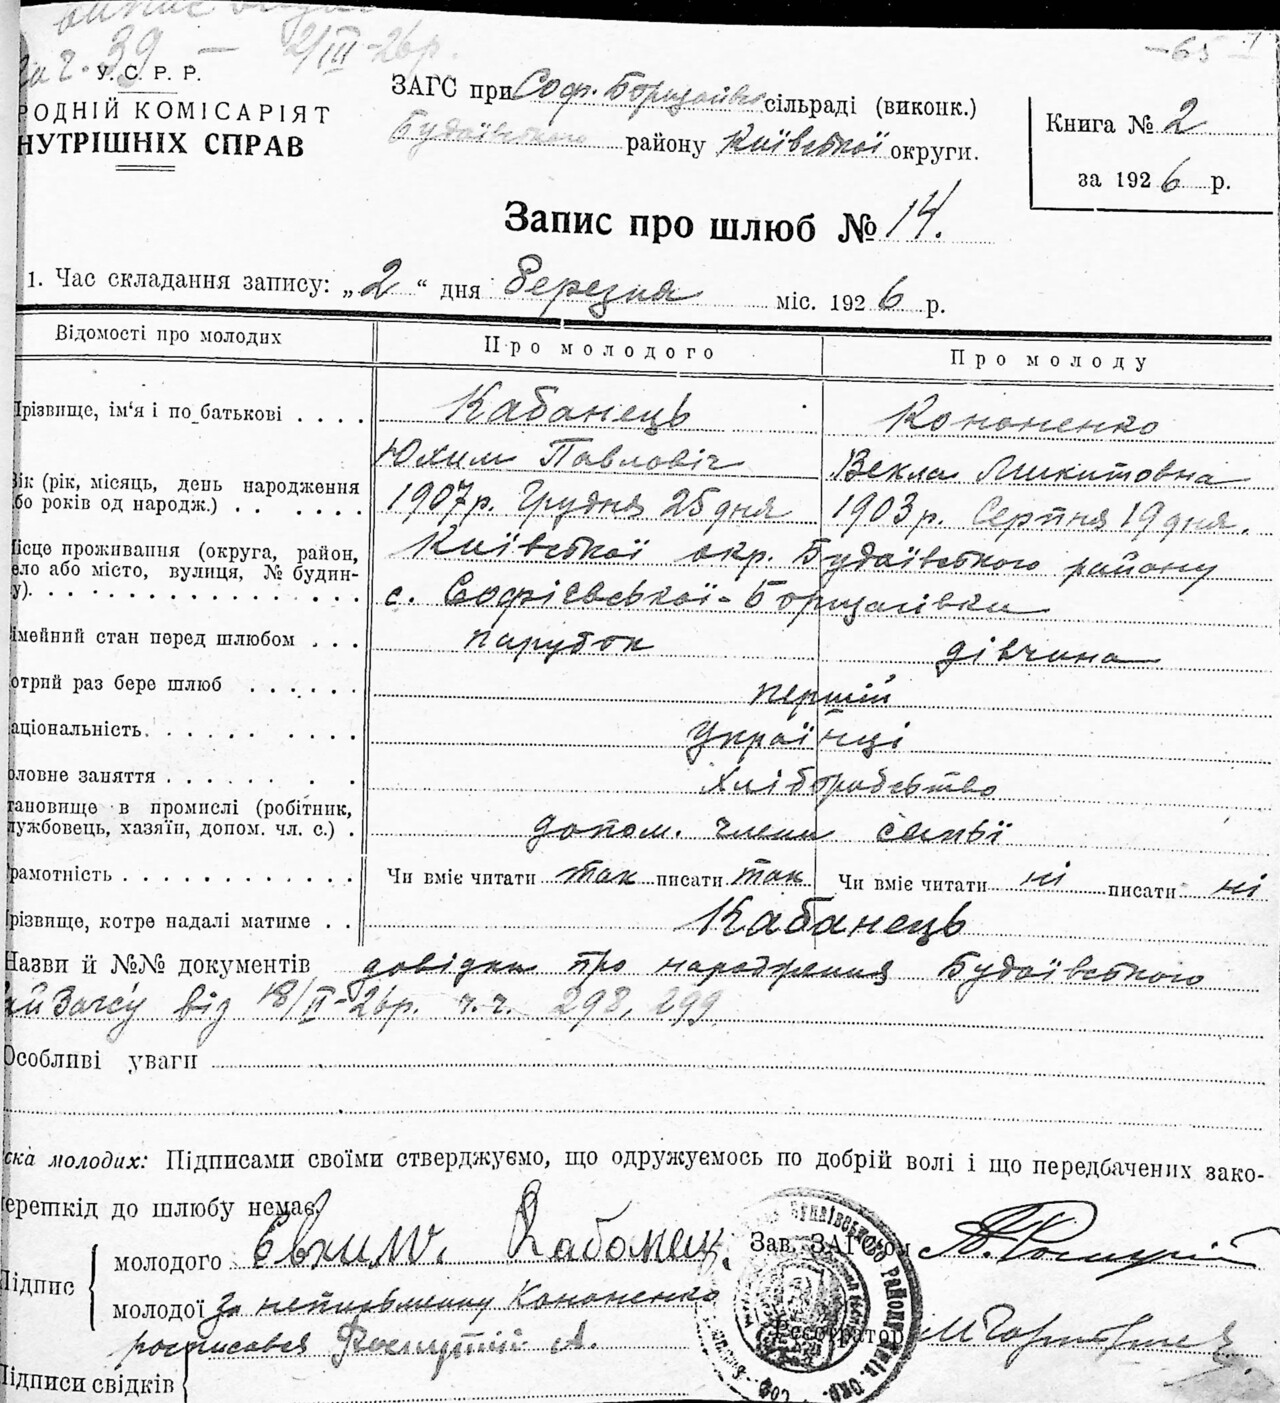 ч. 39 — 2/III-26р.
—65
У. С. Р. Р.
РОДНІЙ КОМІСАРІЯТ
НУТРІШНІХ СПРАВ
ЗАГС при Соф. Борщагівс сільраді (виконк.)
Будаївського району Київської округи.
Книга № 2
за 1926 р.
Запис про шлюб № 14.
1. Час складання запису: „2“ дня Березня міс. 1926 р.
Відомості про молодих Про молодого Про молоду
Прізвище, ім'я і по батькові . . . . Кабанець Кононенко
Юхим Павловіч Векла Микитовна
Вік (рік, місяць, день народження
або років од народж.) . . . . . . 1907р. Грудня 25 дня 1903р. Серпня 19 дня.
Місце проживання (округа, район, Київської окр. Будаївського району
село або місто, вулиця, № будин-
у). . . . . . . . . . . . . . . с. Софієвської-Борщагівки
імейний стан перед шлюбом . . . парубок дівчина
отрий раз бере шлюб . . . . . . перший
аціональність. . . . . . . . . . Українці
оловне заняття . . . . . . . . Хліборобство
тановище в промислі (робітник,
лужбовець, хазяїн, допом. чл. с.) . допом. члени сем'ї
рамотність . . . . . . . . . . . . Чи вміє читати так писати так Чи вміє читати ні писати ні
різвище, котре надалі матиме . . Кабанець
Назви й №№ документів довідки про народження Будаївського
ай Загсу від 18/II-26р. ч.ч. 298, 299
Особливі уваги
ска молодих: Підписами своїми стверджуємо, що одружуемось по добрій волі і що передбачених зако-
ерешкід до шлюбу немає.
Підпис
молодого Євхим. Кабанец. Зав. ЗАГС'ом
молодої За неписьменну Кононенко
росписався А. Реєстратор
Підписи свідків